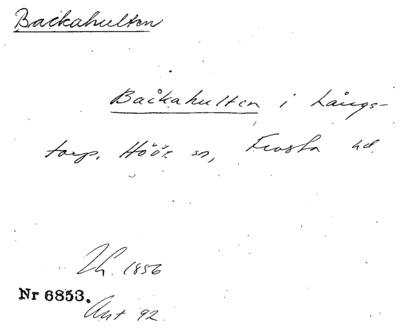 Backahulten
Backahulten i Långs-
torp, Höör sn, Frosta hd.
Lh. 1856
Nr 6853.
Ant 92.